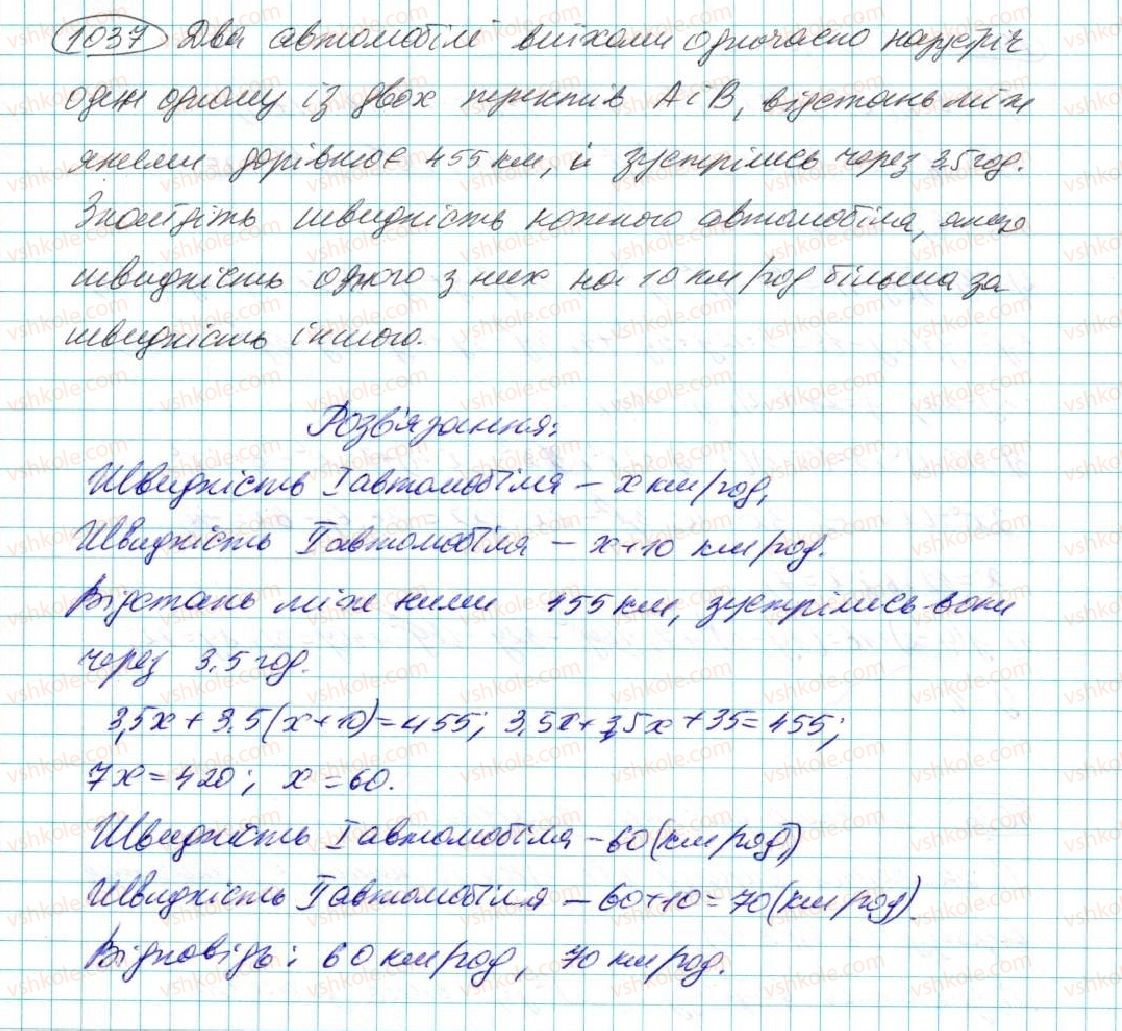 1037 Два автомобілі виїхали одночасно назустріч
один одному із двох пунктів А і В, відстань між
якими дорівнює 455 км, й зустрілись через 3,5 год.
Знайдіть швидкість кожного автомобіля, якщо
швидкість одного з них на 10 км/год більша за
швидкість іншого.
Розв'язання:
Швидкість I автомобіля – x км/год,
Швидкість II автомобіля – x+10 км/год.
Відстань між ними 455 км, зустрілись вони
через 3,5 год.
3,5x + 3,5(x+10)=455; 3,5x+3,5x+35=455;
7x=420; x=60.
Швидкість I автомобіля – 60 (км/год)
Швидкість II автомобіля – 60+10=70 (км/год).
Відповідь: 60 км/год, 70 км/год.
vshkole.com